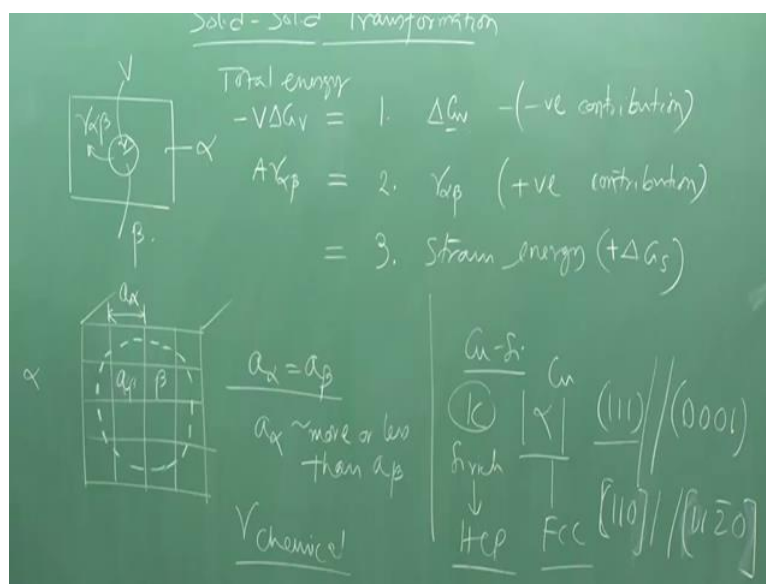 Solid-Solid Transformation
Total energy
-VΔGv = 1. ΔGv -(-ve contribution)
Aγαβ = 2. γαβ (+ve contribution)
= 3. Strain energy (+ΔGs)
V
γαβ
α
β
aα
α
aβ β
aα = aβ
aα ~more or less
than aβ
γchemical
Cu-Si
Cu
K |α| (111)//(0001)
HCP FCC [110]//[112̄0]